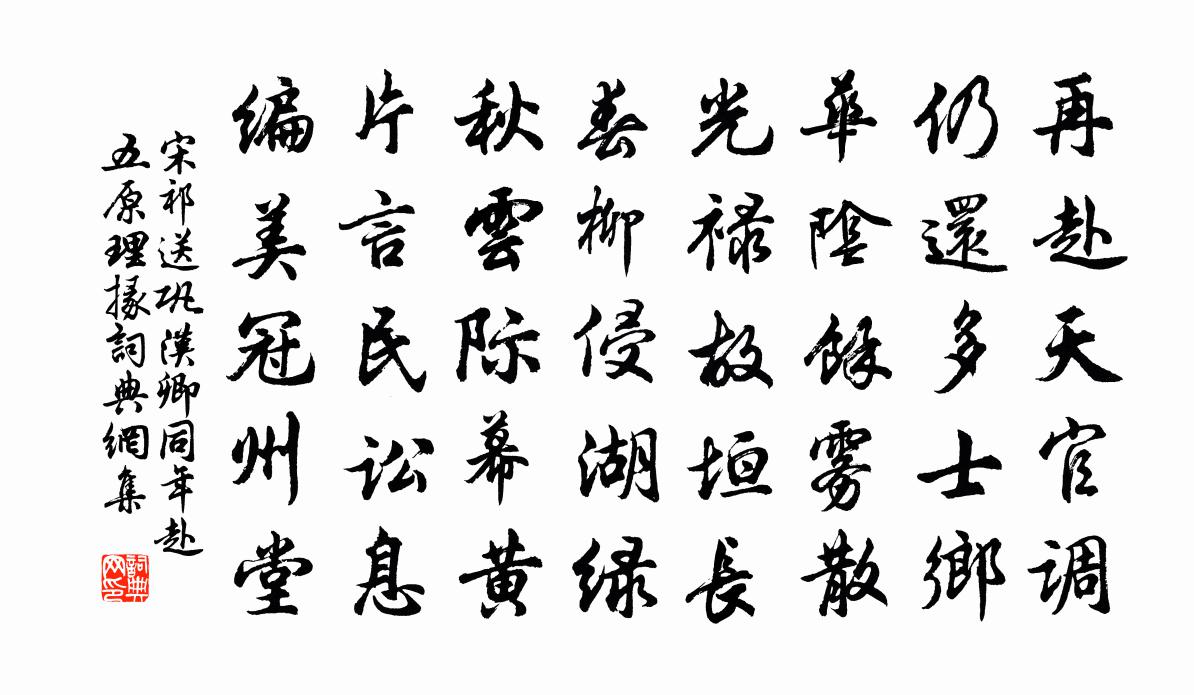 再赴天官调
仍還多士鄉
華陰餘雾散
光禄故垣長
春柳侵湖绿
秋雲际幕黄
片言民讼息
编美冠州堂
宋祁送巩漢卿同年赴
五原理掾詞典網集
詞典網印